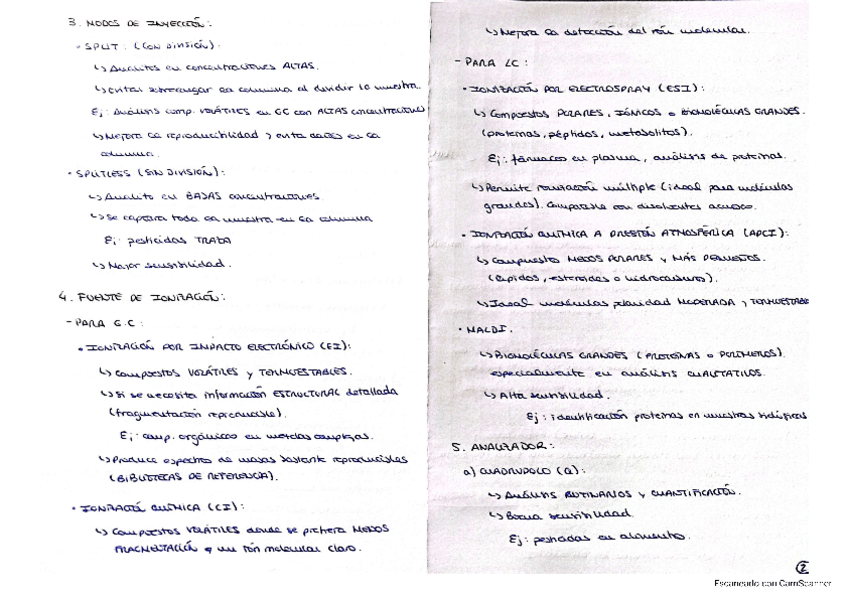 3. MODOS DE INYECCIÓN:
· SPLIT: (CON DIVISIÓN).
↳ Analitos en concentraciones ALTAS.
↳ evitar sobrecargar la columna al dividir la muestra.
Ej: Análisis comp. VOLÁTILES en GC con ALTAS concentraciones
↳ Mejora la reproducibilidad y evita daños en la
columna.
· SPLITLESS (SIN DIVISIÓN):
↳ Analito en BAJAS concentraciones.
↳ Se captura toda la muestra en la columna
Ej: pesticidas TRAZA
↳ Mayor sensibilidad.
4. FUENTE DE IONIZACIÓN:
- PARA G.C:
· IONIZACIÓN POR IMPACTO ELECTRÓNICO (EI):
↳ Compuestos VOLÁTILES y TERMOESTABLES.
↳ Si se necesita información ESTRUCTURAL detallada
(fragmentación reproducible).
Ej: comp. orgánicos en mezclas complejas.
↳ Produce espectro de masas bastante reproducibles
(BIBLIOTECAS DE REFERENCIA).
· IONIZACIÓN QUÍMICA (CI):
↳ Compuestos VOLÁTILES donde se prefiera MENOS
FRAGMENTACIÓN y un ión molecular claro.
↳ Mejora la detección del ión molecular.
- PARA LC:
· IONIZACIÓN POR ELECTROSPRAY (ESI):
↳ Compuestos POLARES, IÓNICOS o BIOMOLÉCULAS GRANDES.
(proteínas, péptidos, metabolitos).
Ej: fármacos en plasma, análisis de proteínas.
↳ Permite ionización múltiple (ideal para moléculas
grandes). Compatible con disolventes acuosos.
· IONIZACIÓN QUÍMICA A PRESIÓN ATMOSFÉRICA (APCI):
↳ Compuestos MENOS POLARES y MÁS PEQUEÑOS.
(lípidos, esteroides o hidrocarburos).
↳ Ideal moléculas polaridad MODERADA y TERMOESTABLE
· MALDI.
↳ BIOMOLÉCULAS GRANDES (PROTEÍNAS o POLÍMEROS).
especialmente en análisis CUALITATIVOS.
↳ Alta sensibilidad.
Ej: identificación proteínas en muestras biológicas
5. ANALIZADOR:
a) CUADRUPOLO (Q):
↳ Análisis RUTINARIOS y CUANTIFICACIÓN.
↳ Buena sensibilidad.
Ej: pesticidas en alimentos.
2
Escaneado con CamScanner